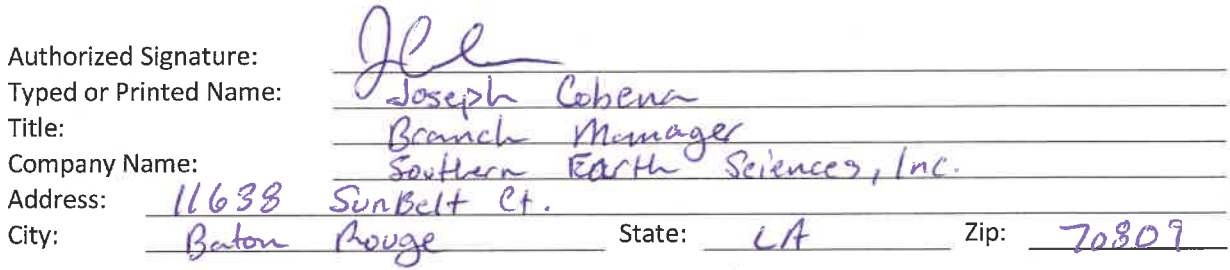 Authorized Signature:
Typed or Printed Name: Joseph Cobena
Title: Branch Manager
Company Name: Southern Earth Sciences, Inc.
Address: 11638 SunBelt Ct.
City: Baton Rouge State: LA Zip: 70809